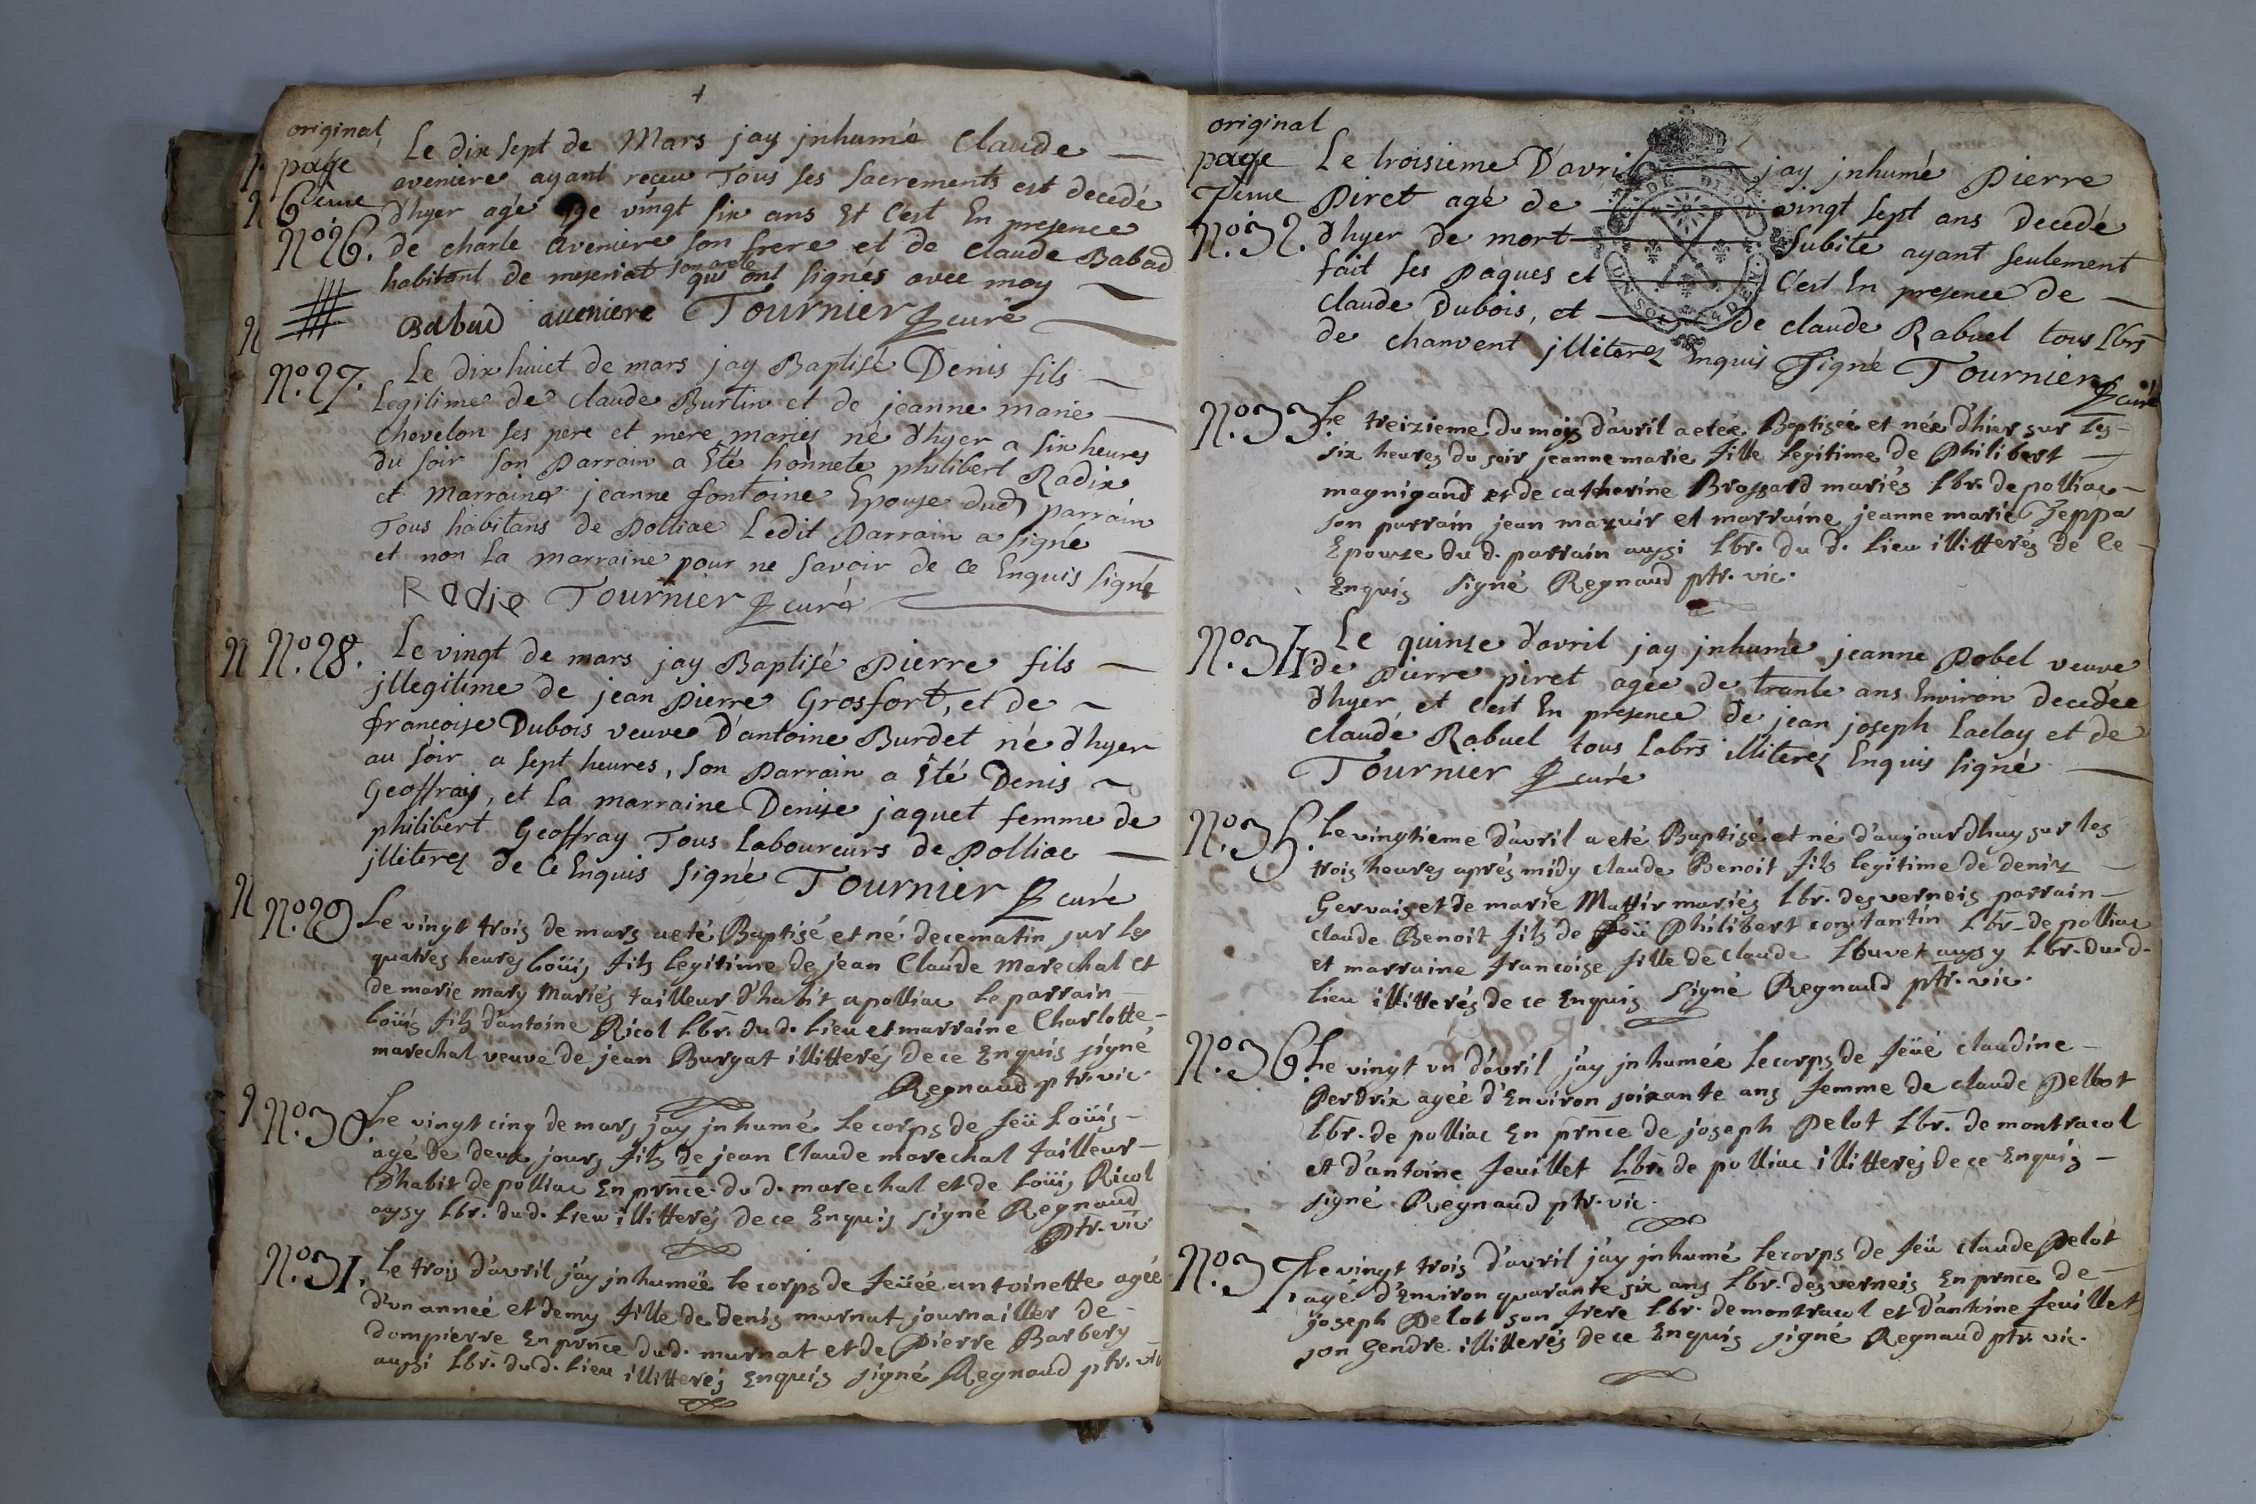 original
page
6eme
Le dix sept de Mars jay jnhumé Claude
aveniere ayant receu Tous ses sacrements est decedé
d'hyer agé de vingt six ans Et C'est En presence
No. 26. de charle aveniere son frere et de Claude Babad
habitant de meseriat qui ont signés avec moy
Babad aueniere Tournier curé
No. 27. Le dix huict de mars jay Baptisé Denis fils
Legitime de Claude Burtin et de jeanne marie
Chevelon ses pere et mere mariez né d'hyer a six heures
du soir son Parrain a Eté honnete philibert Radix
et Marraine jeanne fontaine Epouse dud parrain
Tous habitans de Polliac Ledit Parrain a signé
et non La marraine pour ne savoir de Ce Enquis signé
Radix Tournier curé
No. 28. Le vingt de mars jay Baptisé Pierre fils
jllegitime de jean Pierre Grosfort, et de
francoise Dubois veuve D'antoine Burdet né d'hyer
au soir a sept heures, son Parrain a Eté Denis
Geoffray, et La marraine Denise jaquet femme de
philibert Geoffray Tous Laboureurs de Polliac
jlliterez de Ce Enquis signé Tournier curé
No. 29 Le vingt trois de mars a eté Baptisé et né de ce matin sur les
quatres heures Loüis fils legitime de jean Claude marechal et
de marie mary Mariés tailleur d'habit a polliac Le parrain
Loüis fils d'antoine Ricol Lbr. du d. Lieu et marraine Charlotte
marechal veuve de jean Burgat illitterés de ce Enquis signé
Regnaud ptr. vic.
No. 30. Le vingt cinq de mars jay jnhumé Le corps de feü Loüis
agé de deux jours fils de jean Claude marechal tailleur
D'habit de polliac En prnce du d. marechal et de Loüis Ricol
aussy Lbr. du d. Lieu illitterés de ce Enquis signé Regnaud
Ptr. vic
No. 31. Le trois d'avril j'ay jnhumée Le corps de feüée antoinette agée
d'un année et demy fille de denis murnat journaillier de
dompierre En prnce du d. murnat et de Pierre Barbery
aussi Lbr. du d. Lieu illitterés Enquis signé Regnaud ptr. vic
original
page
7eme
Le troisieme D'avril jay jnhumé Pierre
Piret agé de vingt sept ans Decedé
No. 32. d'hyer de mort subite ayant seulement
fait ses Paques et C'est En presence de
Claude Dubois, et de claude Rabuel tous Lbrs
de chanvent jlliterez Enquis signé Tournier
curé
No. 33. Le treizieme du mois d'avril a etée Baptisée et née d'hier sur les
six heures du soir jeanne marie fille legitime de Philibert
magnigand et de catherine Brossard mariés Lbr. de polliac
son parrain jean mazuir et marraine jeanne marie Teppa
Epouze du d. parrain aussi Lbr. du d. Lieu illitterés de Ce
Enquis signé Regnaud ptr. vic.
No. 34. Le quinze d'avril jay jnhumé jeanne Pobel veuve
de Pierre piret agée de trante ans Environ decedée
d'hyer et C'est En presence de jean joseph Laclay et de
Claude Rabuel tous Labrs illiterez Enquis signé
Tournier curé
No. 35. Le vingtieme d'avril a eté Baptisé et né d'aujourdhuy sur les
trois heures aprés midy claude Benoit fils legitime de denis
Gervais et de marie Mattir mariés Lbr. des verneis parrain
Claude Benoit fils de feü Philibert constantin Lbr. de polliac
et marraine francoise fille de Claude Louvet aussy Lbr. du d.
Lieu illitterés de ce Enquis signé Regnaud ptr. vic.
No. 36. Le vingt un d'avril j'ay jnhumée Le corps de feüe claudine
Perdrix agée d'Environ soixante ans femme de claude Pelot
Lbr. de polliac En prnce de joseph Pelot Lbr. de montracol
et d'antoine feuillet Lbr. de polliac illitterés de ce Enquis
signé Regnaud ptr. vic.
No. 37. Le vingt trois d'avril j'ay jnhumé Le corps de feü claude Pelot
agé d'Environ quarante six ans Lbr. des verneis En prnce de
joseph Pelot son frere Lbr. de montracol et d'antoine feuillet
son Gendre illitterés de ce Enquis signé Regnaud ptr. vic.